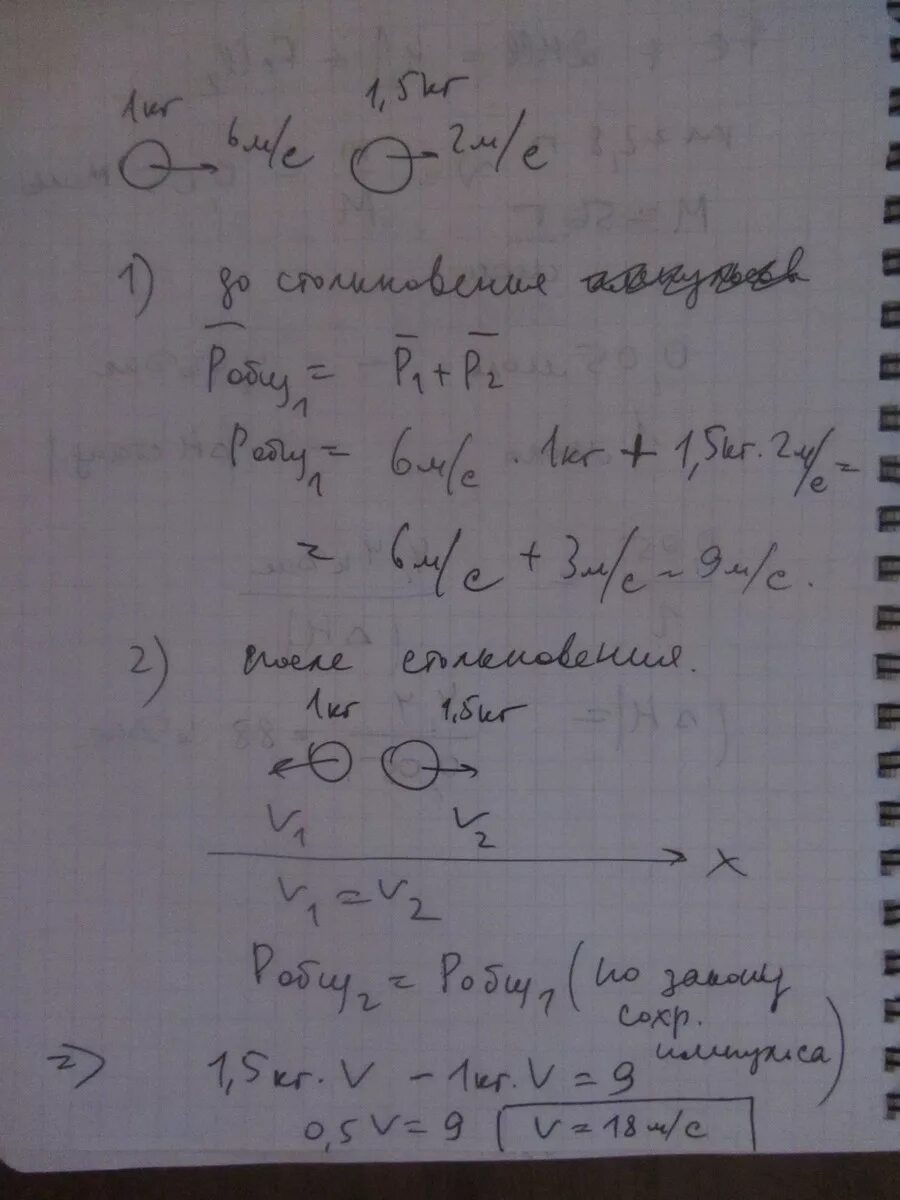 1кг 1,5кг
6м/с 2м/с
1) до столкновения
P̅общ₁ = P̅₁ + P̅₂
Pобщ₁ = 6м/с · 1кг + 1,5кг · 2м/с =
= 6м/с + 3м/с = 9м/с.
2) после столкновения.
1кг 1,5кг
V₁ V₂
X
V₁ = V₂
Pобщ₂ = Pобщ₁ (по закону
сохр.
импульса)
=> 1,5кг · V − 1кг · V = 9
0,5V = 9 V = 18 м/с